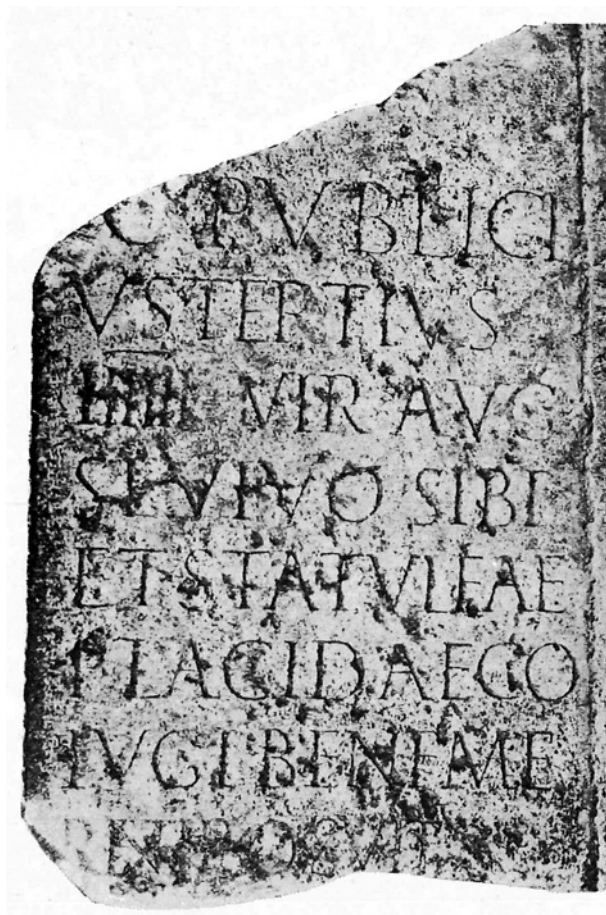 C PVBLICI
VS TERTIVS
IIIIII VIR AVG
SE VIVO SIBI
ET STATVLEAE
PLACIDAE CO
IVGI BENEME
RENTI POSVIT